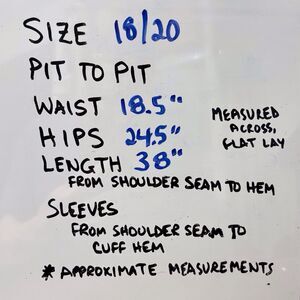 SIZE 18/20
PIT TO PIT
WAIST 18.5"
HIPS 24.5"
LENGTH 38"
MEASURED
ACROSS,
FLAT LAY
FROM SHOULDER SEAM TO HEM
SLEEVES
FROM SHOULDER SEAM TO
CUFF HEM
* APPROXIMATE MEASUREMENTS